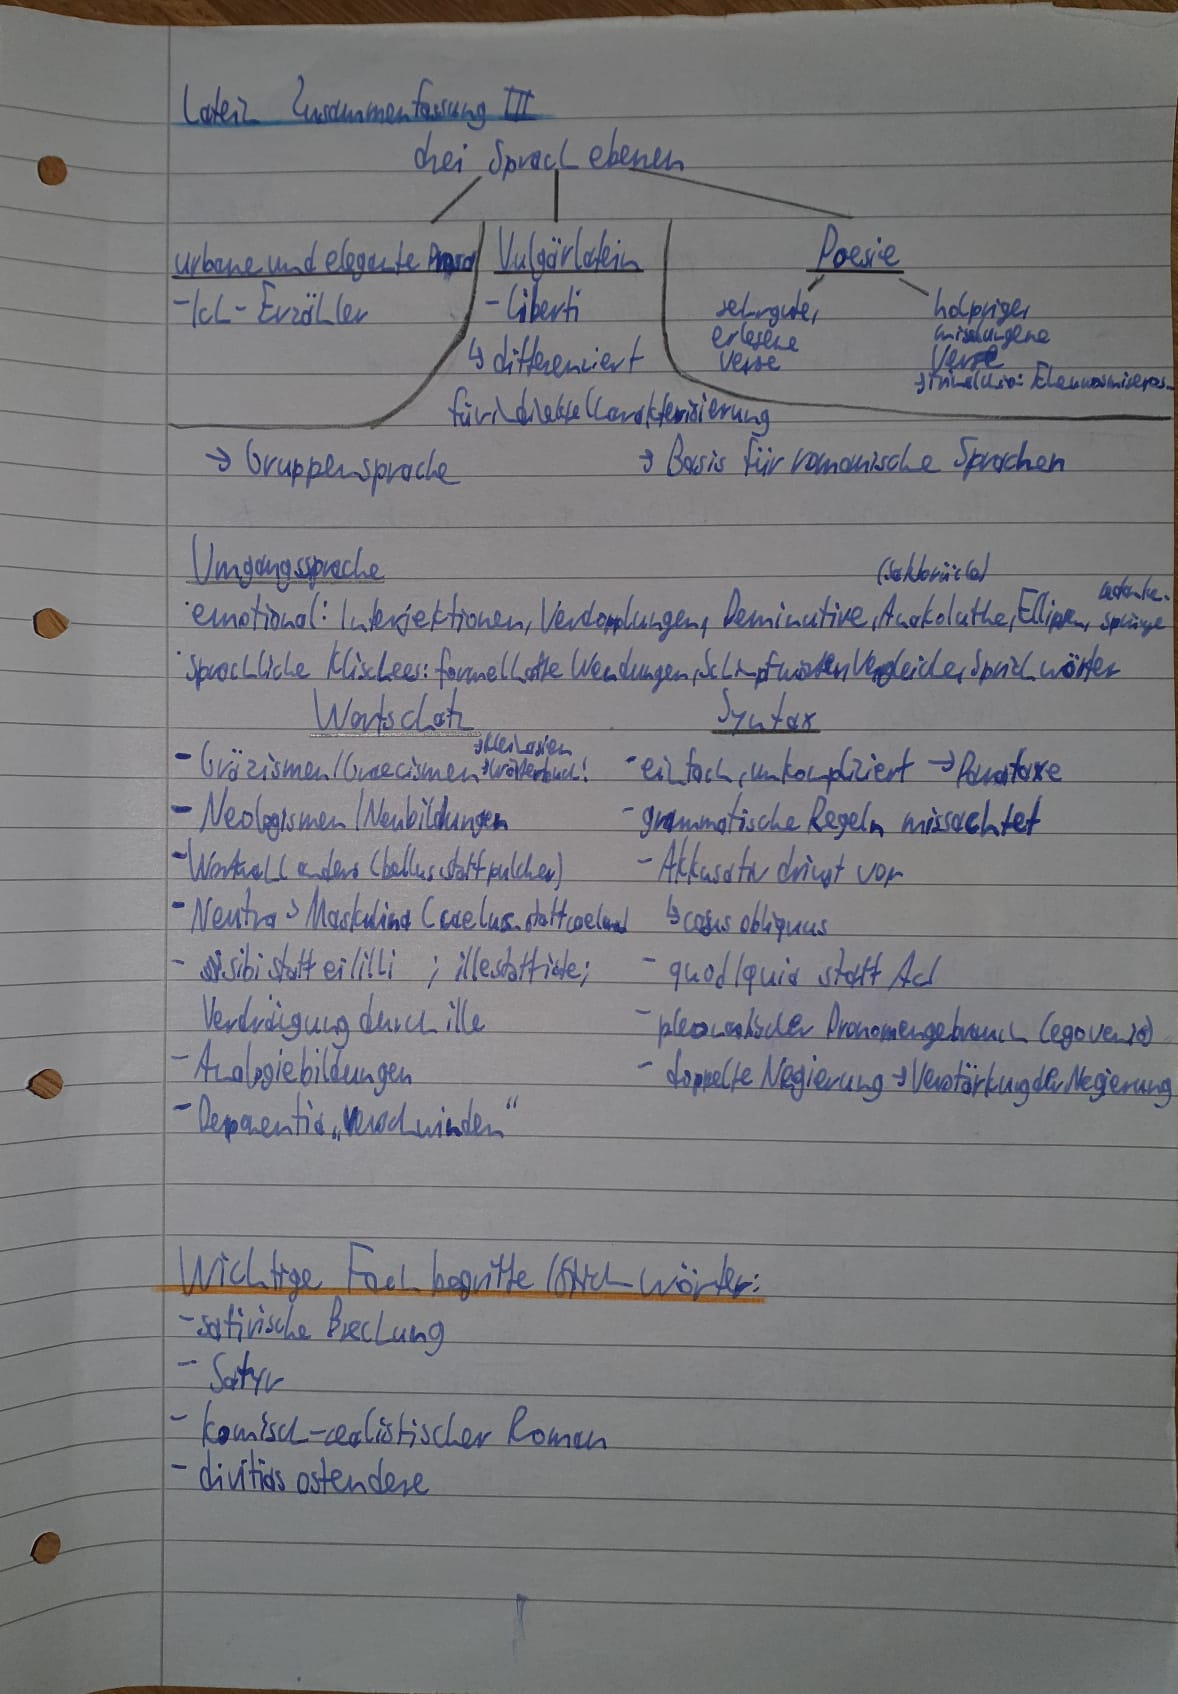 Latein Zusammenfassung III
drei Sprachebenen
urbane und elegante Prosa
- Ich-Erzähler
Vulgärlatein
- liberti
↳ differenziert
für indirekte Charakterisierung
Poesie
sehr gute,
erlesene
Verse
holprige,
misslungene
Verse
→ Gruppensprache
→ Basis für romanische Sprachen
Umgangssprache
· emotional: Interjektionen, Verdopplungen, Deminutive, Anakoluthe, Ellipsen, Gedanken-
sprünge
(Satzbrüche)
· sprachliche Klischees: formelhafte Wendungen, Schimpfwörter, Vergleiche, Sprichwörter
Wortschatz
- Gräzismen/Graecismen → Kleinasien
→ Wörterbuch!
- Neologismen/Neubildungen
- Wortwahl anders (bellus statt pulcher)
- Neutra > Maskulina (caelus statt caelum)
- sibi statt ei/illi ; ille statt iste;
Verdrängung durch ille
- Analogiebildungen
- Deponentia „verschwinden“
Syntax
- einfach, unkompliziert → Parataxe
- grammatische Regeln missachtet
- Akkusativ dringt vor
↳ casus obliquus
- quod/quia statt AcI
- pleonastischer Pronomengebrauch (ego venio)
- doppelte Negierung → Verstärkung der Negierung
Wichtige Fachbegriffe/Stichwörter:
- satirische Brechung
- Satyr
- komisch-realistischer Roman
- divitias ostendere